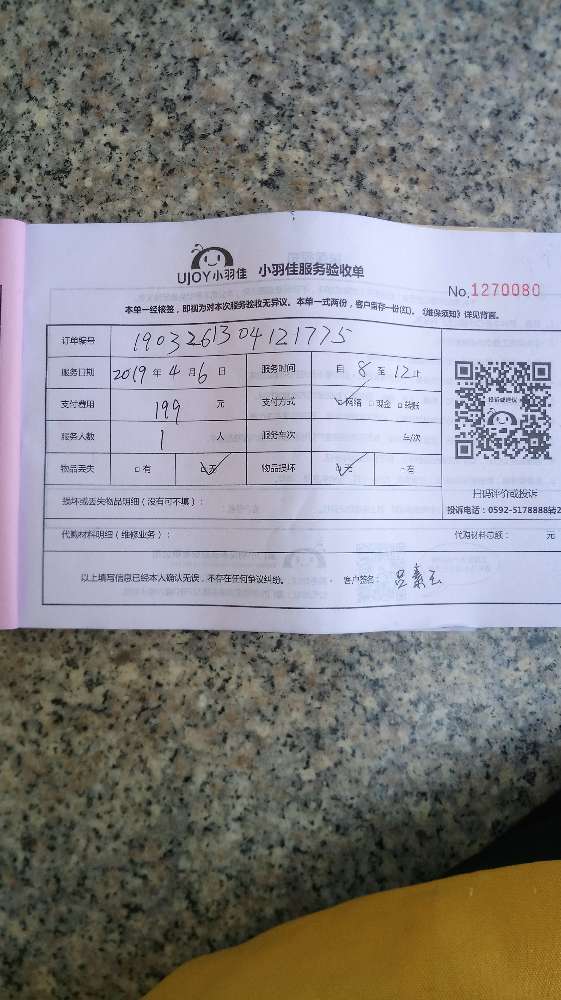 UJOY小羽佳 小羽佳服务验收单
No.1270080
本单一经核签，即视为对本次服务验收无异议。本单一式两份，客户需存一份(红)。《维保须知》详见背面。
订单编号 1903261304121775
服务日期 2019 年 4 月 6 日 服务时间 自 8 至 12 止
支付费用 199 元 支付方式 网络 现金 转账
服务人数 1 人 服务车次 车/次
物品丢失 有 无 物品损坏 无 有
投诉或建议
扫码评价或投诉
损坏或丢失物品明细（没有可不填）：
投诉电话：0592-5178888转2
代购材料明细（维修业务）： 代购材料总额： 元
以上填写信息已经本人确认无误，不存在任何争议纠纷。 客户签名： 吕素玉